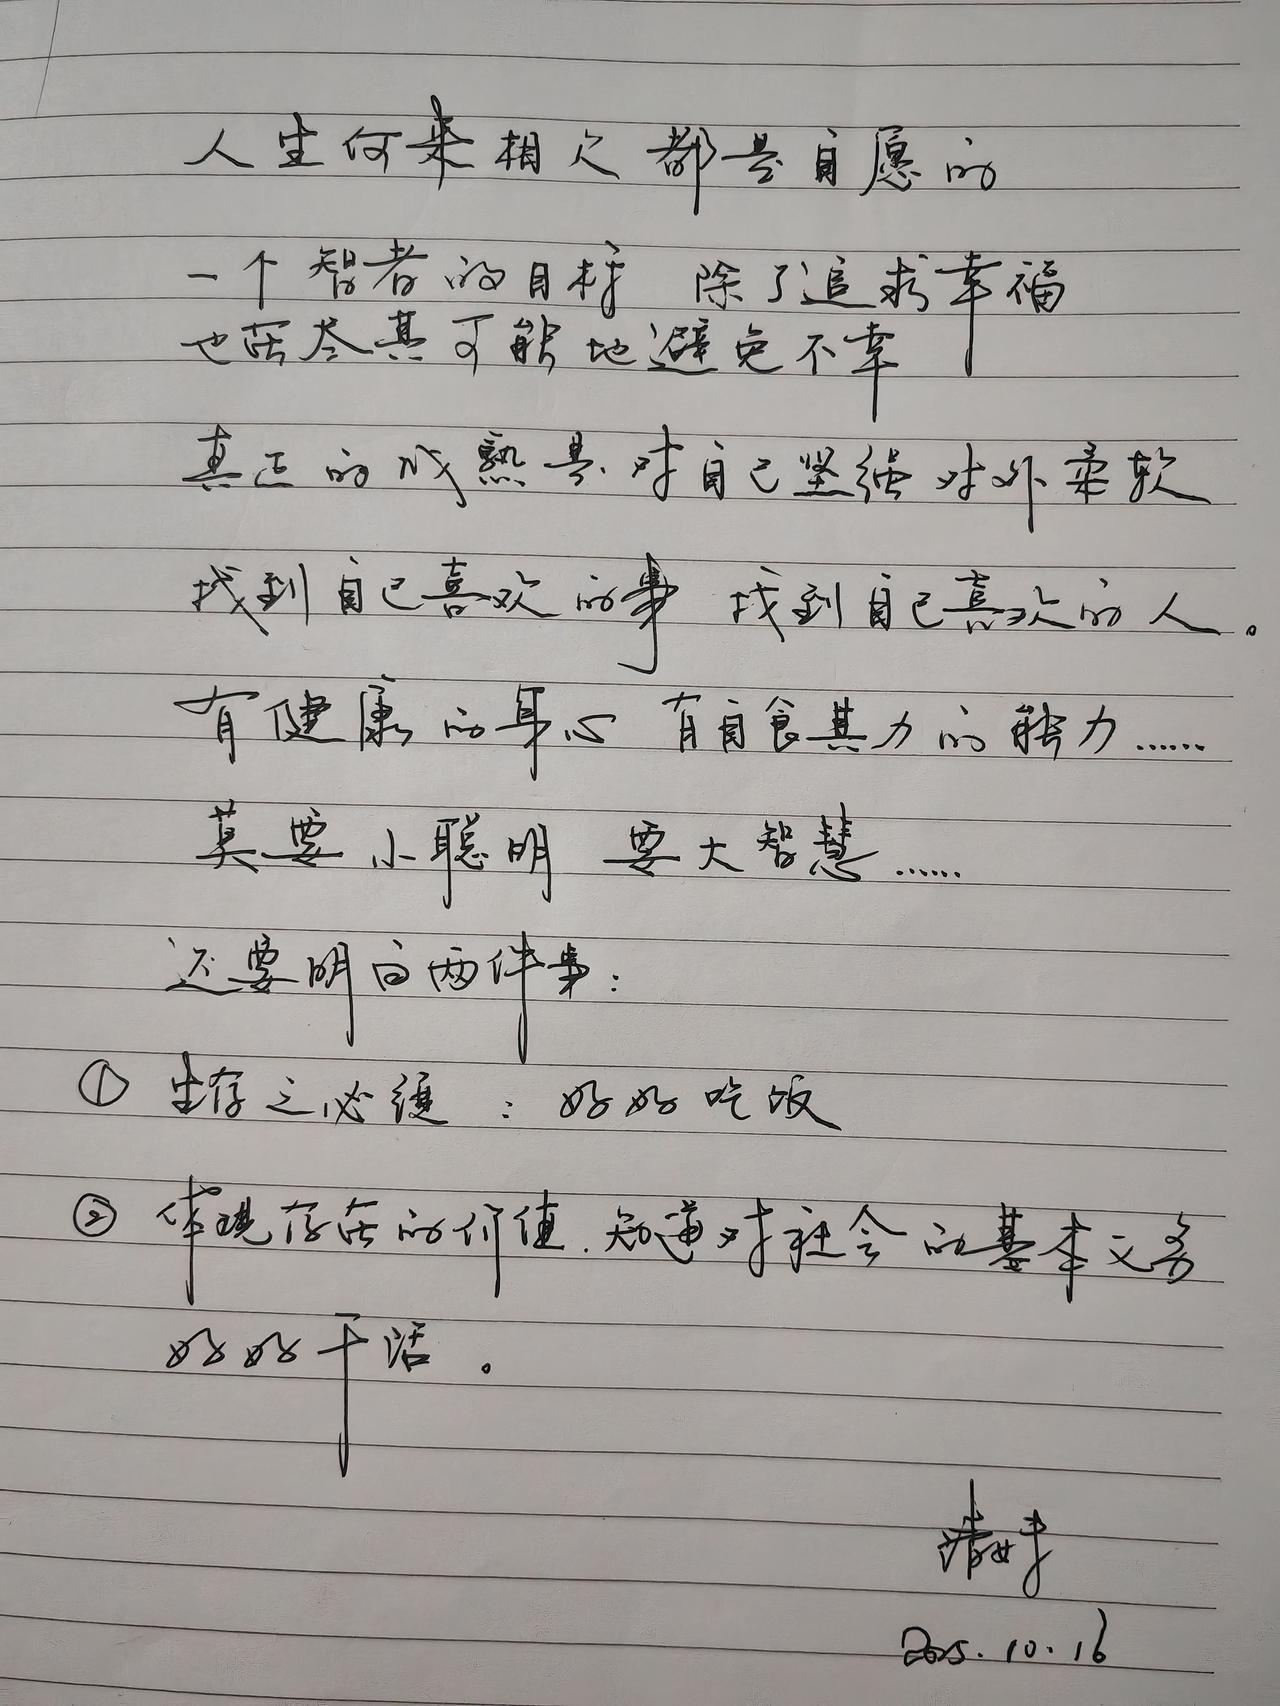 人生何来相欠 都是自愿的
一个智者的目标 除了追求幸福
也在尽其可能地避免不幸
真正的成熟是 对自己坚强 对外柔软
找到自己喜欢的事 找到自己喜欢的人。
有健康的身心 有自食其力的能力……
莫要小聪明 要大智慧……
还要明白两件事：
① 生存之必须：好好吃饭
② 体现存在的价值.知道对社会的基本义务
好好干活。
2025.10.16